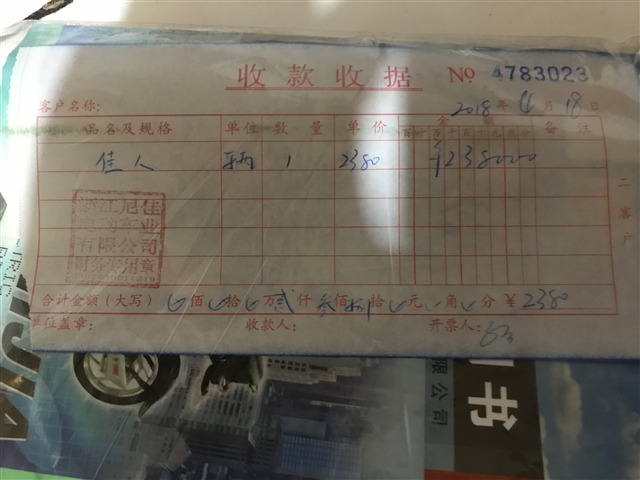 收款收据 № 4783023
客户名称: 2018年 月18日
品名及规格 单位 数量 单价 金额 备注
百十万千百十元角分
佳人 辆 1 2380 ¥238000
二客户
浙江尼佳
电动车业
有限公司
财务专用章
合计金额(大写) 佰 拾 万贰仟叁佰捌拾 元 角 分 ¥2380
单位盖章: 收款人: 开票人:
书
限公司
NIJIA